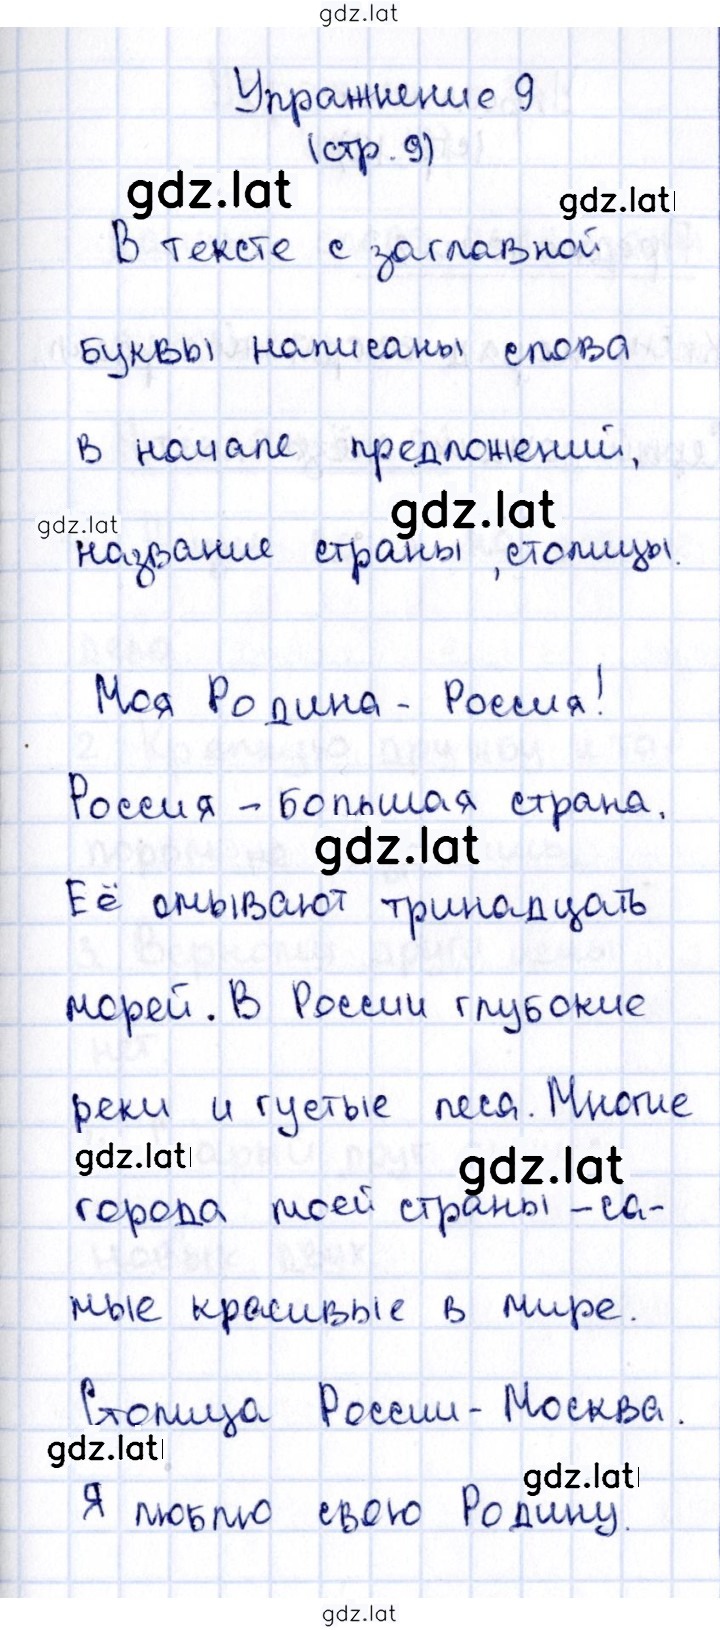 gdz.lat
Упражнение 9
(стр. 9)
gdz.lat
gdz.lat
В тексте с заглавной
буквы написаны слова
в начале предложений,
gdz.lat
gdz.lat
название страны, столицы.
Моя Родина - Россия!
Россия - большая страна.
gdz.lat
Её омывают тринадцать
морей. В России глубокие
реки и густые леса. Многие
gdz.lat
gdz.lat
города моей страны - са-
мые красивые в мире.
Столица России - Москва.
gdz.lat
gdz.lat
Я люблю свою Родину.
gdz.lat